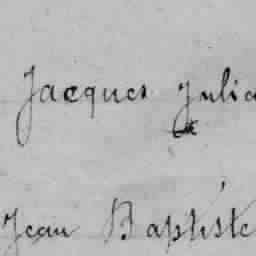 Jacques Julie
Jean Baptiste